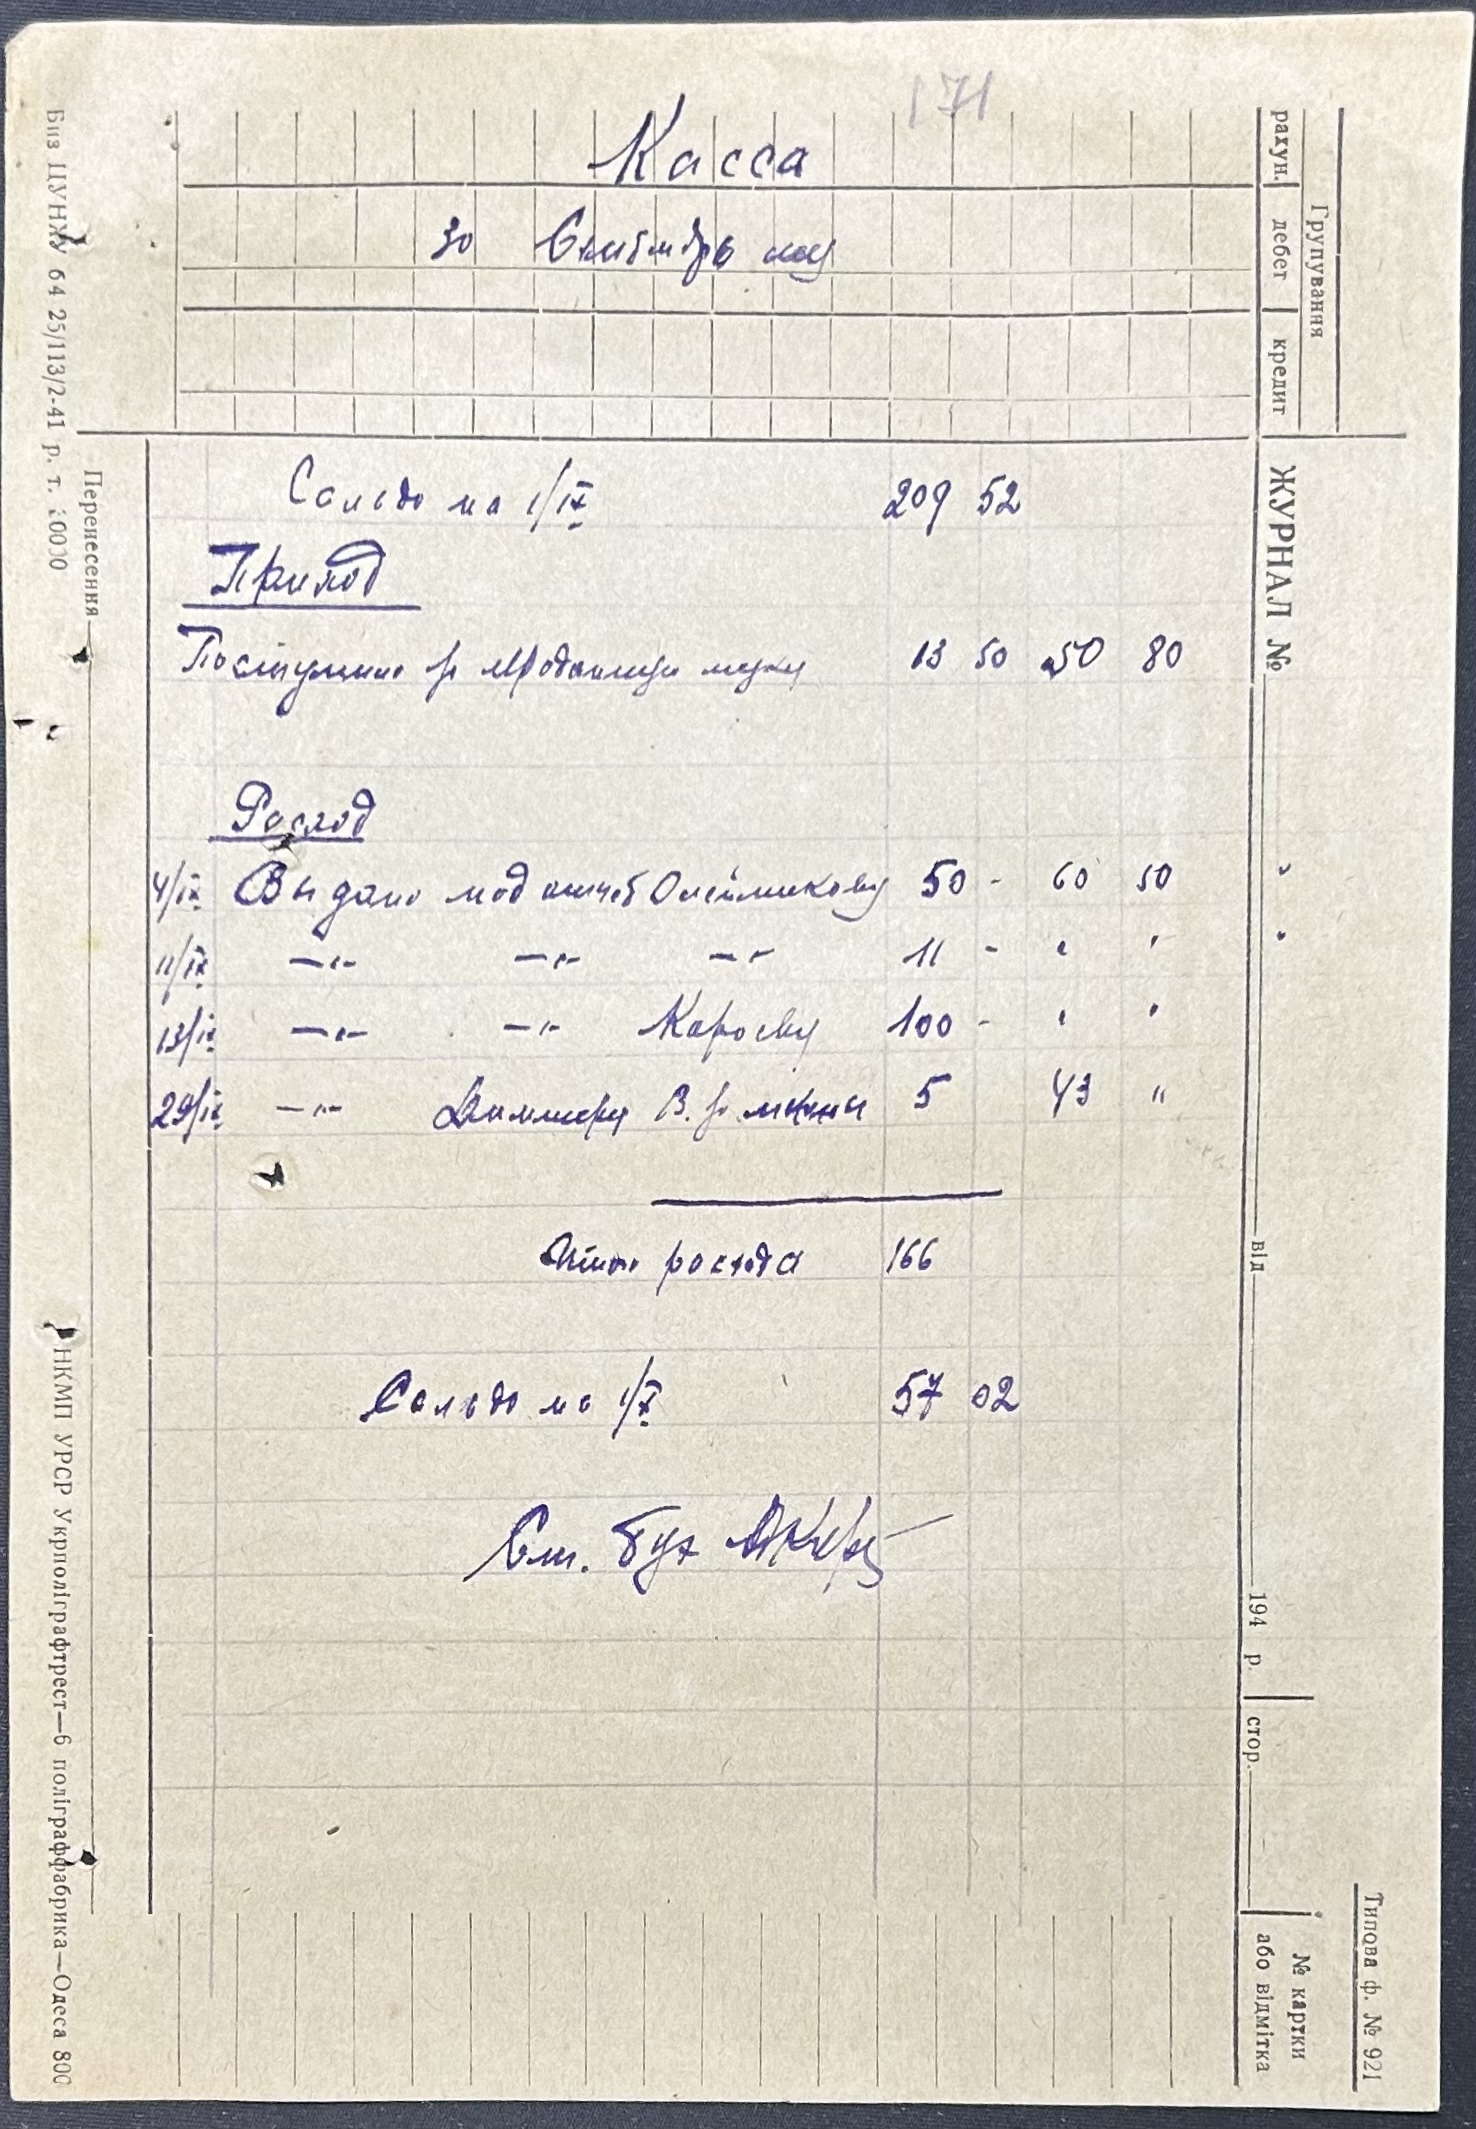 171
Касса
30 Сентябрь мц
Сальдо на 1/IX 209 52
Приход
Поступило за проданную муку 13 50 50 80
Расход
4/IX Выдано под отчет Олейникову 50 - 60 50 "
11/IX —"— —"— —"— 11 - " " "
13/IX —"— —"— Кароеву 100 - " "
29/IX —"— В. за 5 43 "
Итого расхода 166
Сальдо на 1/X 57 02
Ст. бух
Групування
рахун. дебет кредит
ЖУРНАЛ № від 194 р. стор.
№ картки або відмітка
Типова ф. № 921
Перенесення
Биз ЦУНХУ 64 25/113/2-41 р. т. 30000
НКМП УРСР Укрполіграфтрест—6 поліграффабрика—Одеса 800